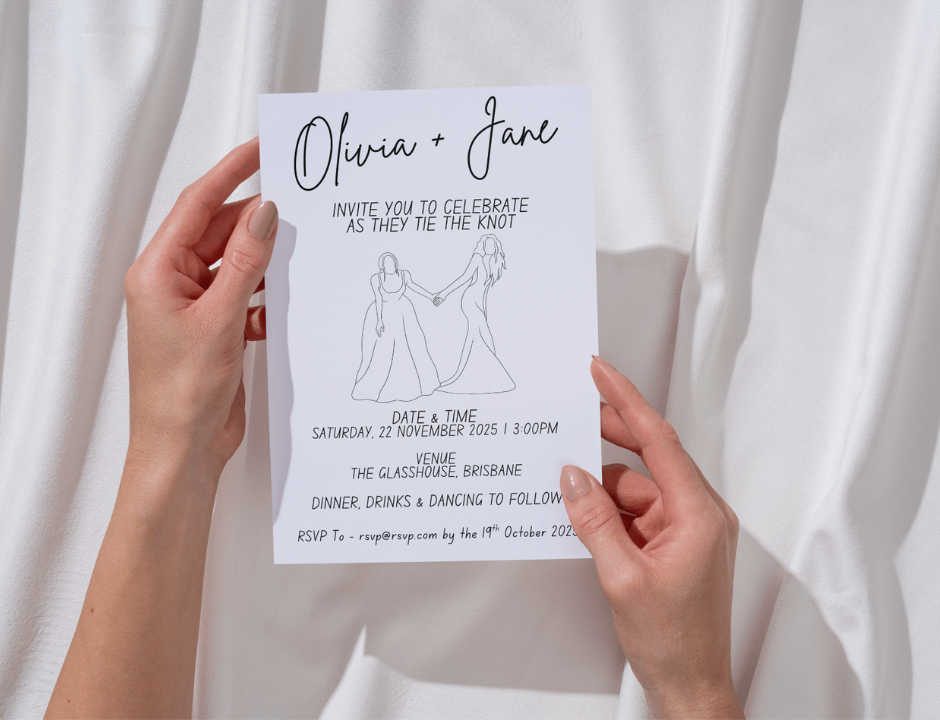 Olivia + Jane
INVITE YOU TO CELEBRATE
AS THEY TIE THE KNOT
DATE & TIME
SATURDAY, 22 NOVEMBER 2025 | 3:00PM
VENUE
THE GLASSHOUSE, BRISBANE
DINNER, DRINKS & DANCING TO FOLLOW
RSVP To - rsvp@rsvp.com by the 19th October 2025